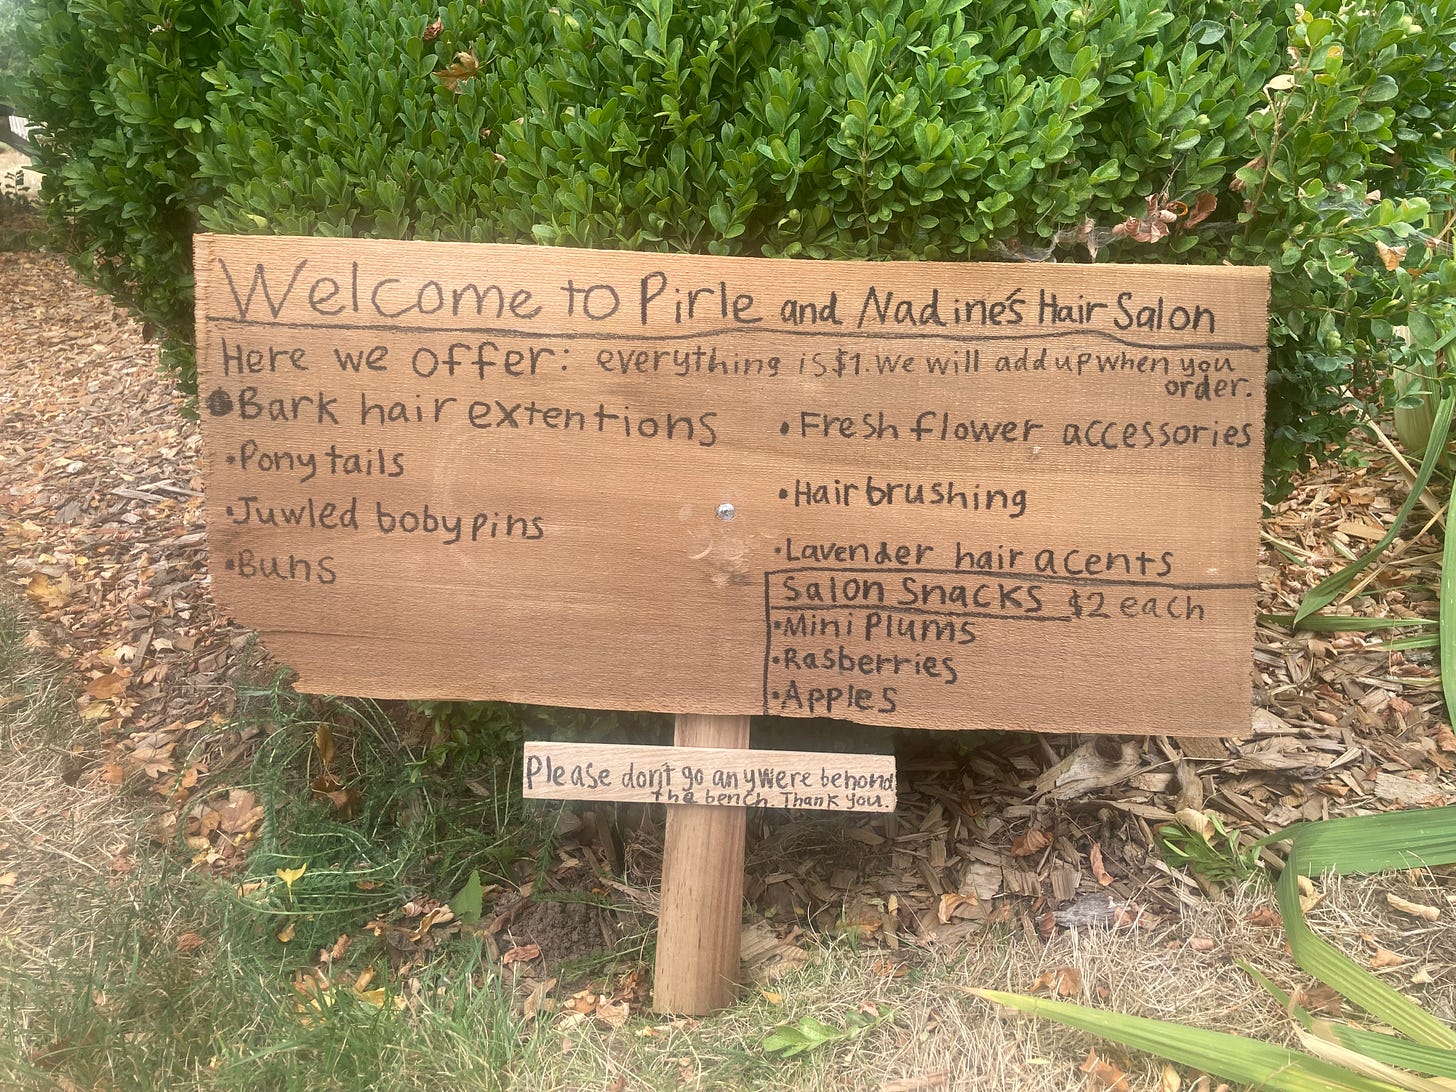 Welcome to Pirle and Nadine's Hair Salon
Here we offer: everything is $1. We will add up when you
order.
• Bark hair extentions
• Pony tails
• Juwled boby pins
• Buns
• Fresh flower accessories
• Hair brushing
• Lavender hair acents
Salon Snacks $2 each
• Mini Plums
• Rasberries
• Apples
Please don't go anywere behond
the bench. Thank you.